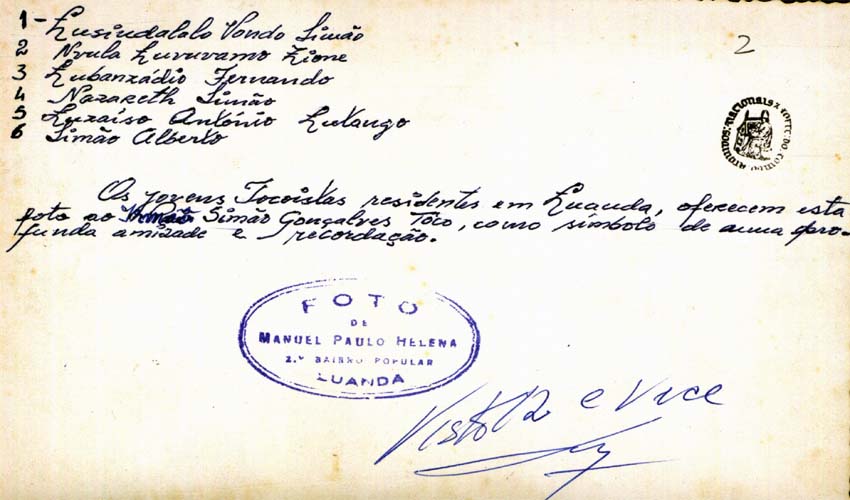 1 - Lusindalalo Vondo Simão
2 Nvula Luvuvamo Zione
3 Lubanzádio Fernando
4 Nazareth Simão
5 Luzaiso António Lutango
6 Simão Alberto
2
Os jovens Tocoistas residentes em Luanda, oferecem esta
foto ao Simão Gonçalves Tôco, como símbolo de uma pro-
funda amizade e recordação.
FOTO
DE
MANUEL PAULO HELENA
2.º BAIRRO POPULAR
LUANDA
Visto
e